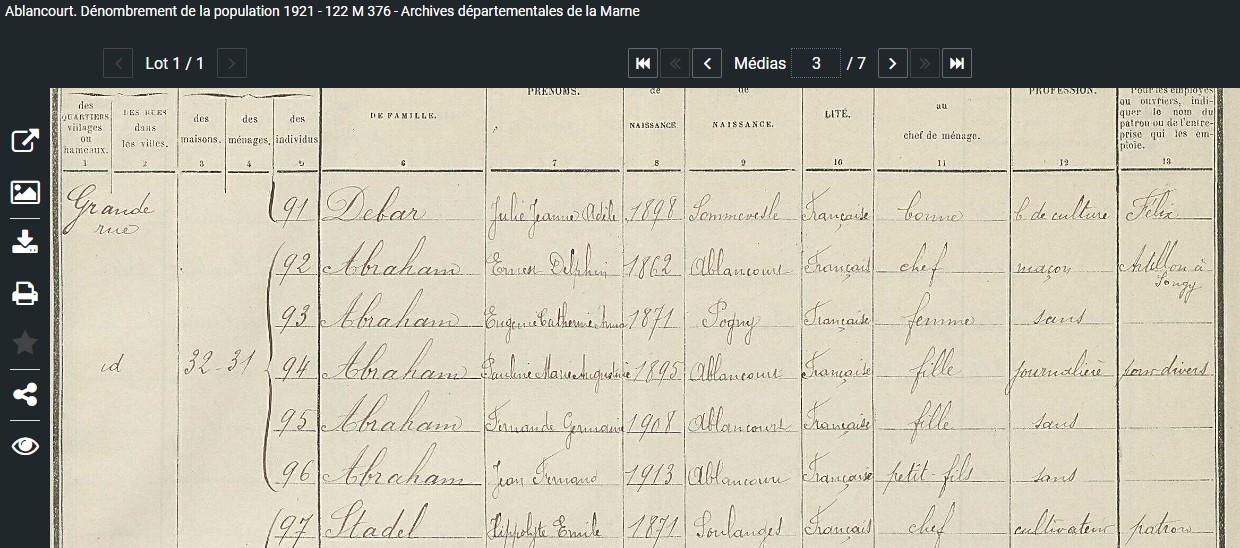 Ablancourt. Dénombrement de la population 1921 - 122 M 376 - Archives départementales de la Marne
Lot 1 / 1
Médias 3 / 7
des QUARTIERS, villages ou hameaux.
LES RUES dans les villes.
des maisons.
des ménages.
des individus
DE FAMILLE.
PRÉNOMS.
de NAISSANCE
de NAISSANCE.
LITÉ.
au chef de ménage.
PROFESSION.
Pour les employés ou ouvriers, indiquer le nom du patron ou de l'entreprise qui les emploie.
1 2 3 4 5 6 7 8 9 10 11 12 13
Grande rue 91 Debar Julie Jeanne Adèle 1898 Sommevesle Française bonne b. de culture Félix
92 Abraham Ernest Delphin 1862 Ablancourt Français chef maçon à Songy
93 Abraham Eugenie Catherine Anna 1871 Pogny Française femme sans
id 32 - 31 94 Abraham Pauline Marie Augustine 1895 Ablancourt Française fille journalière pour divers
95 Abraham Fernande Germaine 1908 Ablancourt Française fille sans
96 Abraham Jean Fernand 1913 Ablancourt Française petit-fils sans
97 Stadel Hippolyte Emile 1871 Soulanges Français chef cultivateur patron